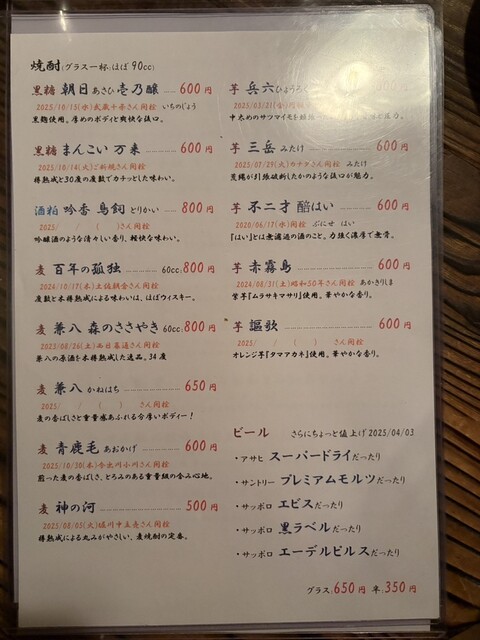 焼酎(グラス一杯、ほぼ 90cc)
黒糖 朝日 あさひ 壱乃醸 ...... 600 円
2025/10/15(水)武蔵十番さん開栓 いちのじょう
黒麹使用。厚めのボディと爽快な後口。
黒糖 まんこい 万来 ............ 600 円
2025/10/14(火)ご新規さん開栓
樽熟成と30度の度数でカチッとした味わい。
酒粕 吟香 鳥飼 とりかい ...... 800 円
2025/ / ( ) さん開栓
吟醸酒のような清々しい香り、軽快な味わい。
麦 百年の孤独 ............ 60cc:800 円
2024/10/17(木)土佐朝金さん開栓
度数と木樽熟成による味わいは、ほぼウイスキー。
麦 兼八 森のささやき 60cc:800 円
2023/08/26(土)西日暮通さん開栓
兼八の原酒を木樽熟成した逸品。34度
麦 兼八 かねはち ............ 650 円
2025/ / ( ) さん開栓
麦の香ばしさと重量感あふれる分厚いボディー!
麦 青鹿毛 あおかげ ............ 600 円
2025/10/30(木)今出川小川さん開栓
煎った麦の香ばしさ、とろみのある重量級の含み心地。
麦 神の河 ............ 500 円
2025/08/05(火)堀川中立売さん開栓
樽熟成による丸みがやさしい、麦焼酎の定番。
芋 兵六 ひょうろく 600 円
2025/03/21(金)
中太めのサツマイモを
芋 三岳 みたけ ............ 600 円
2025/07/29(火)カナタさん開栓 みたけ
荒縄が引張破断したかのような後口が魅力。
芋 不二才 醅はい ............ 600 円
2020/06/17(水)開栓 ぶにせ はい
『はい』とは無濾過の酒のこと。力強く濃厚で無骨。
芋 赤霧島 ............ 600 円
2024/08/31(土)昭和50年さん開栓 あかきりしま
紫芋『ムラサキマサリ』使用。華やかな香り。
芋 謳歌 ............ 600 円
2025/ / ( ) さん開栓
オレンジ芋『タマアカネ』使用。華やかな香り。
ビール さらにちょっと値上げ 2025/04/03
・アサヒ スーパードライだったり
・サントリー プレミアムモルツだったり
・サッポロ エビスだったり
・サッポロ 黒ラベルだったり
・サッポロ エーデルピルスだったり
グラス:650円 半:350円